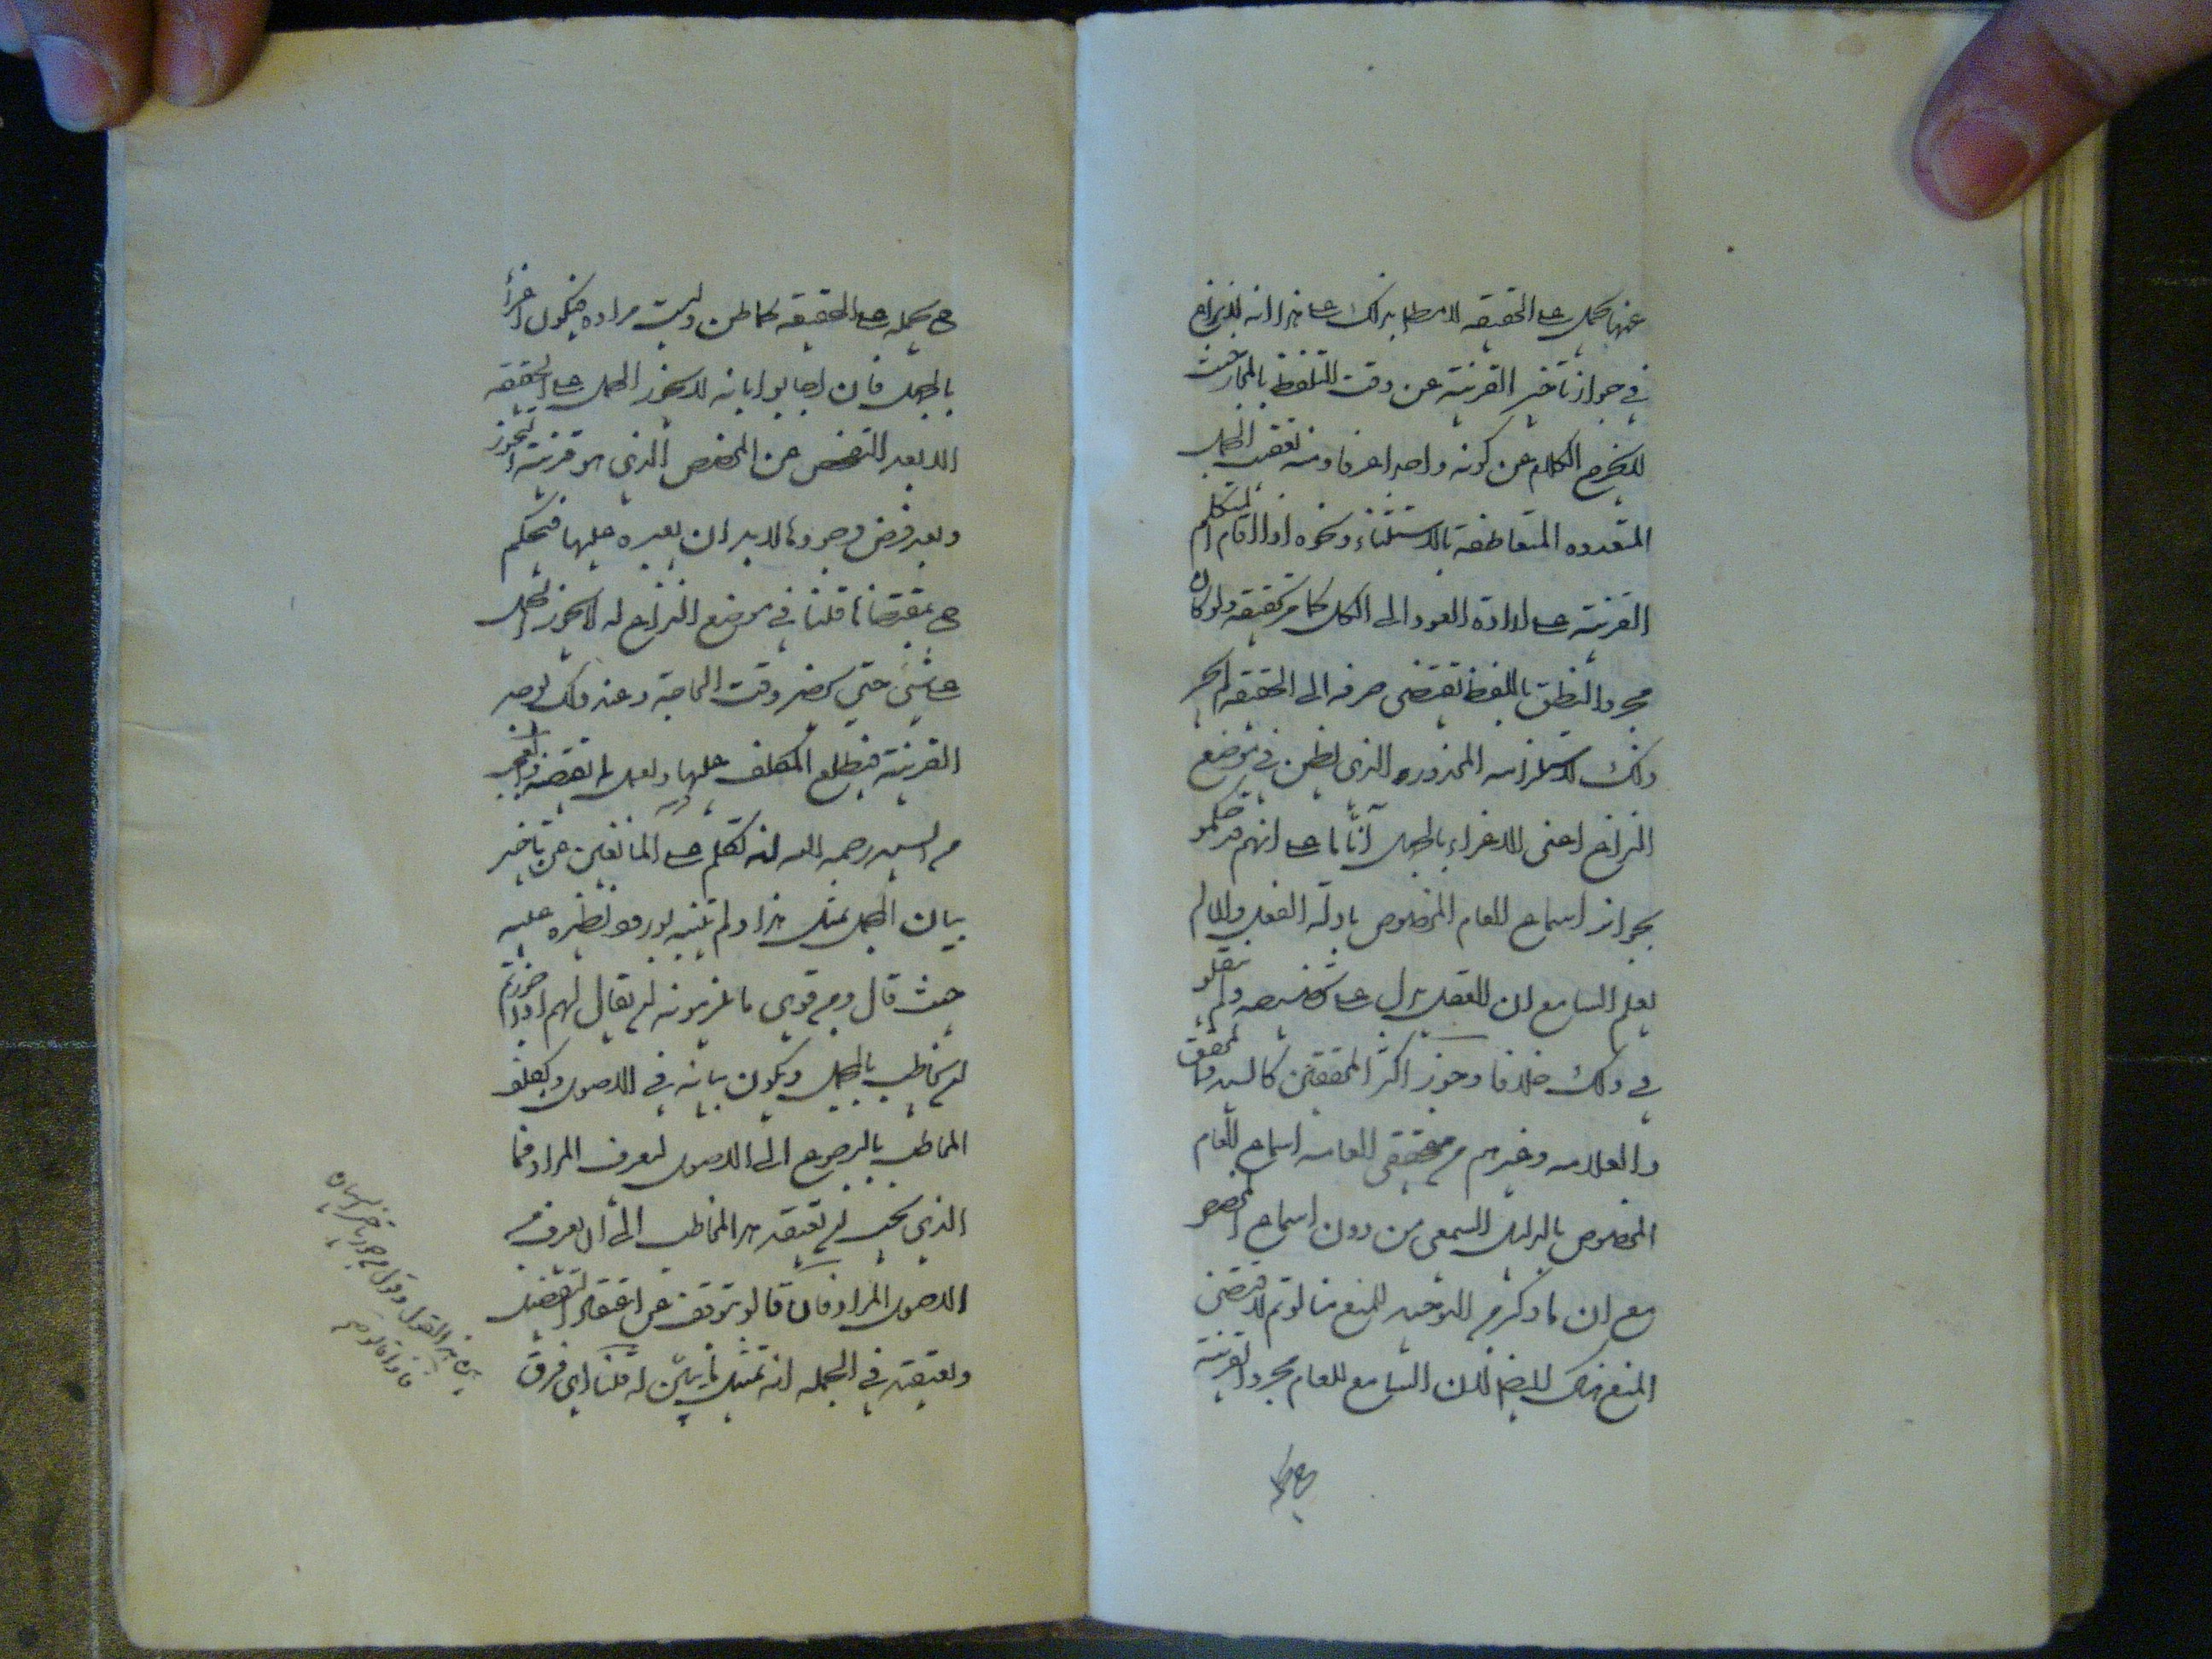 عنها يحمل على الحقيقة لا مطلقا يدلك على هذا انه لا نزاع
في جواز تاخير القرينة عن وقت التلفظ بالمجاز بحيث
لا يخرج الكلام عن كونه واحدا عرفا ومنه تعقب الجمل
المتعدده المتعاطفة بالاستثناء ونحوه اذا اقام المتكلم
القرينة على ارادة العود الى الكل كما مر تحقيقه ولو كان
مجرد النطق باللفظ يقتضى صرفه الى الحقيقة لم يجز
ذلك لاستلزامه المحذور الذى يظن فى موضع
النزاع اعنى الاغراء بالجهل آنا ما على انهم قد حكموا
بجواز اسماع العام المخصوص بادلة العقل وان لم
يعلم السامع ان العقل يدل على تخصيصه ولم ينقلوا
فى ذلك خلافا وجوز اكثر المحققين كالسيد والمحقق
والعلامه وغيرهم من محققى العامه اسماع العام
المخصوص بالدليل السمعى من دون اسماع المخصص
مع ان ما ذكر من التوجيه للمنع هنا لو تم لاقتضى
المنع هناك ايضا لان السامع للعام مجردا عن القرينة
ح يحمله على الحقيقه كما ظن وليست مراده فيكون اغراء
بالجهل فان اجابوا بانه لا يجوز الحمل على الحقيقه
الا بعد التفحص عن المخصص الذى هو قرينة التجوز
وبعد فرض وجودها لا بد ان يعثر عليها فيحكم
ح بمقتضاها قلنا فى موضع النزاع انه لا يجوز الحمل
على شئ حتى يحضر وقت الحاجة وعند ذلك يوجد
القرينة فيطلع المكلف عليها ويعمل بما يقتضيه والعجب
من السيد رحمه الله انه تكلم على المانعين من تاخير
بيان المجمل بمثل هذا ولم يتنبه لورود نظيره عليه
حيث قال ومن قوى ما يلزمونه ان يقال لهم اذا جوزتم
ان يخاطب بالمجمل ويكون بيانه فى الاصول ويكلف
المخاطب بالرجوع الى الاصول ليعرف المراد فما
الذى يجب ان يعتقد هذا المخاطب الى ان يعرف من
الاصول المراد فان قالوا يتوقف عن اعتقاد التفصيل
ويعتقد فى الجمله انه يمتثل ما يبين له قلنا اى فرق